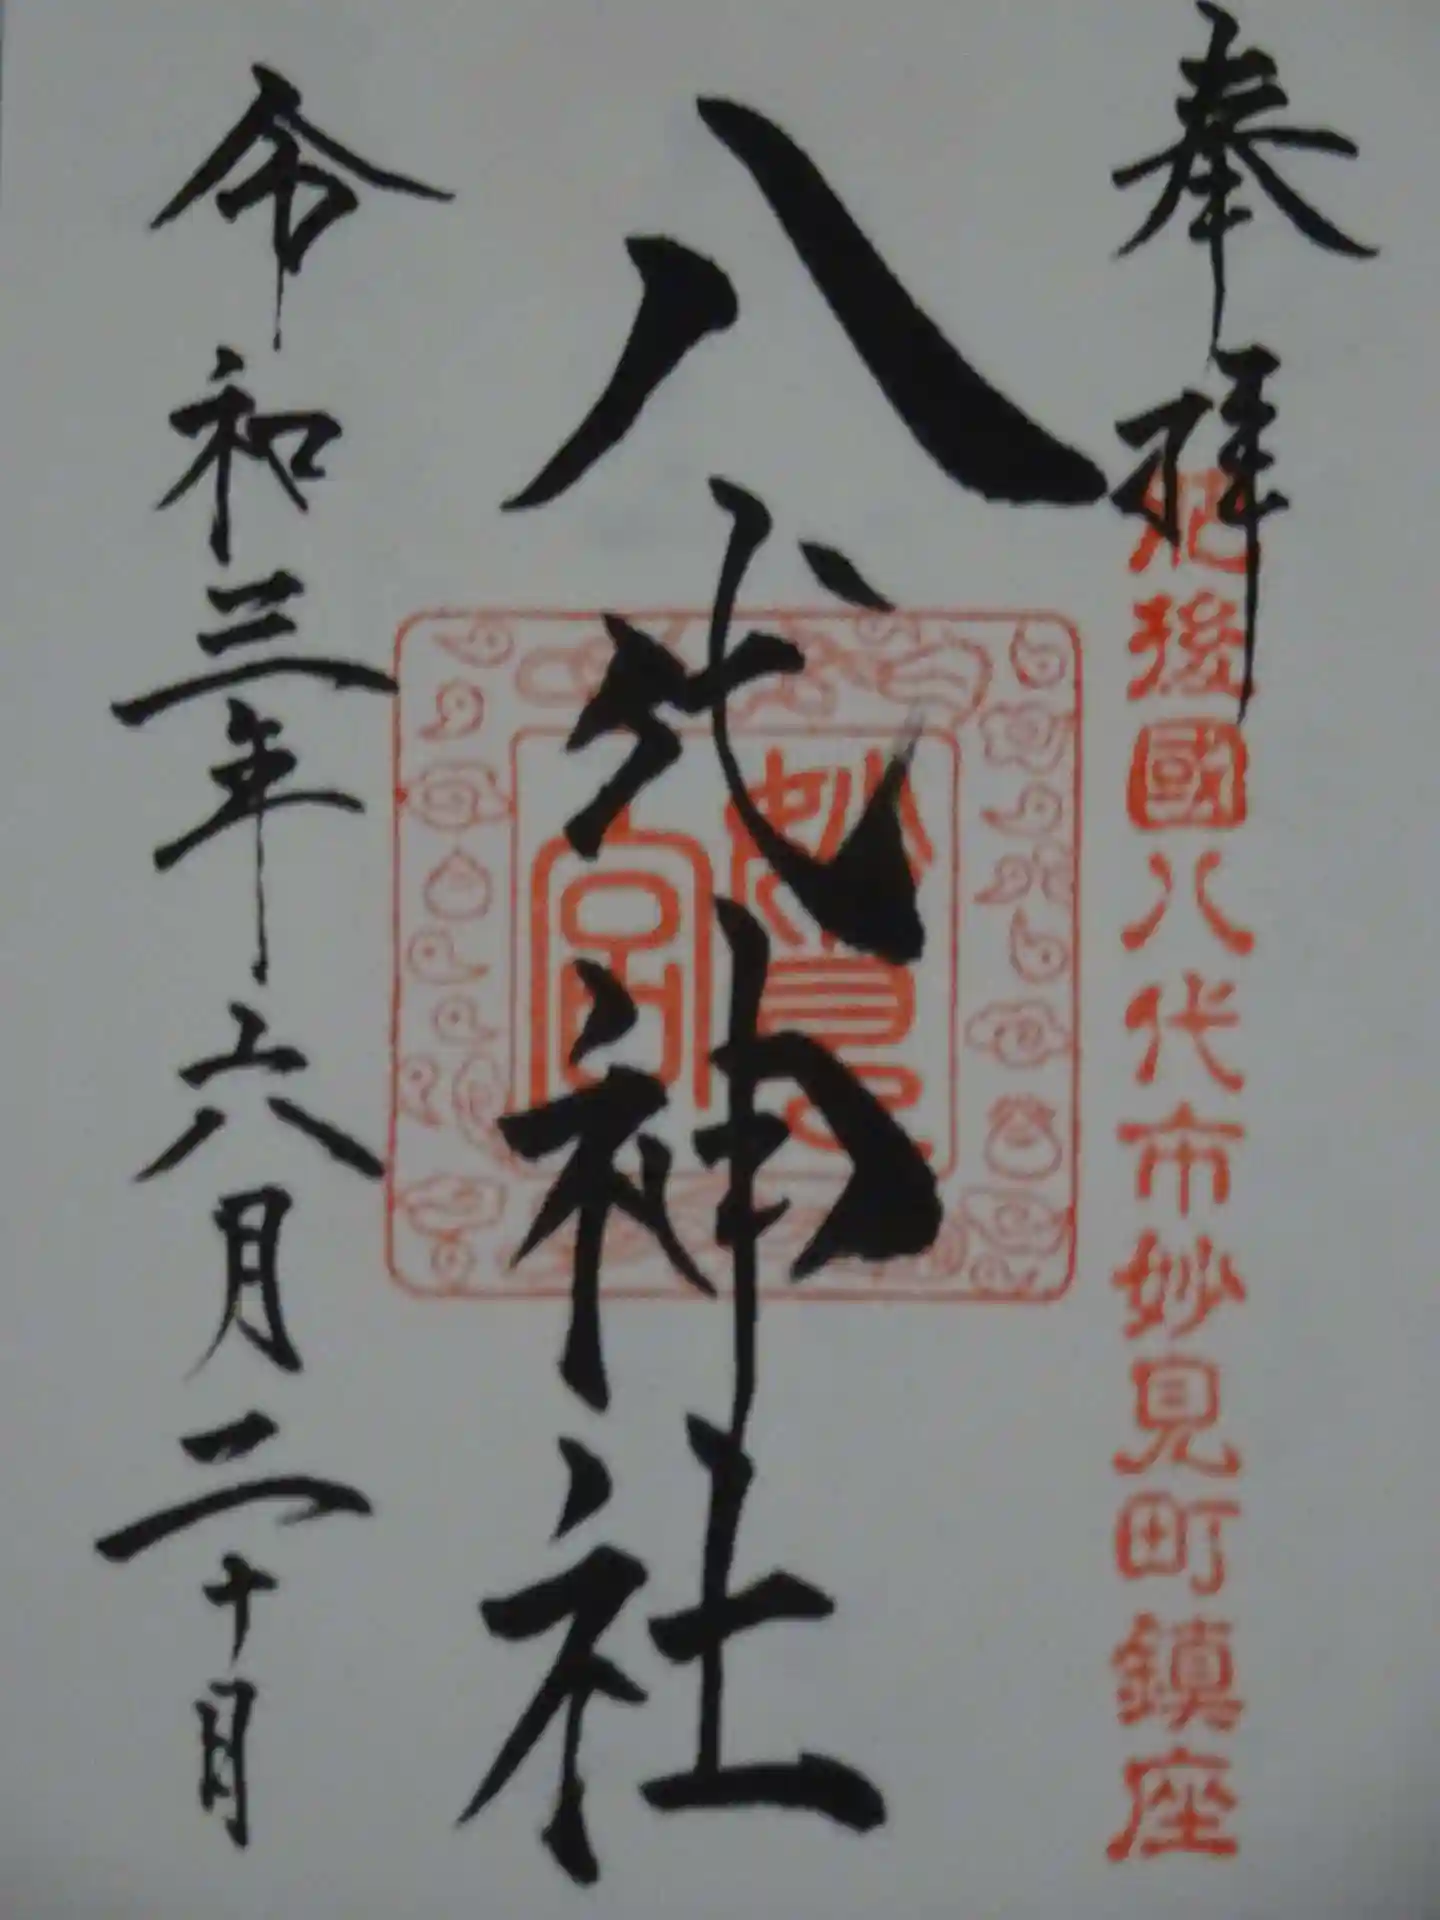 奉拝
肥後國八代市妙見町鎮座
八代神社
妙見
宮
令和三年六月二十日